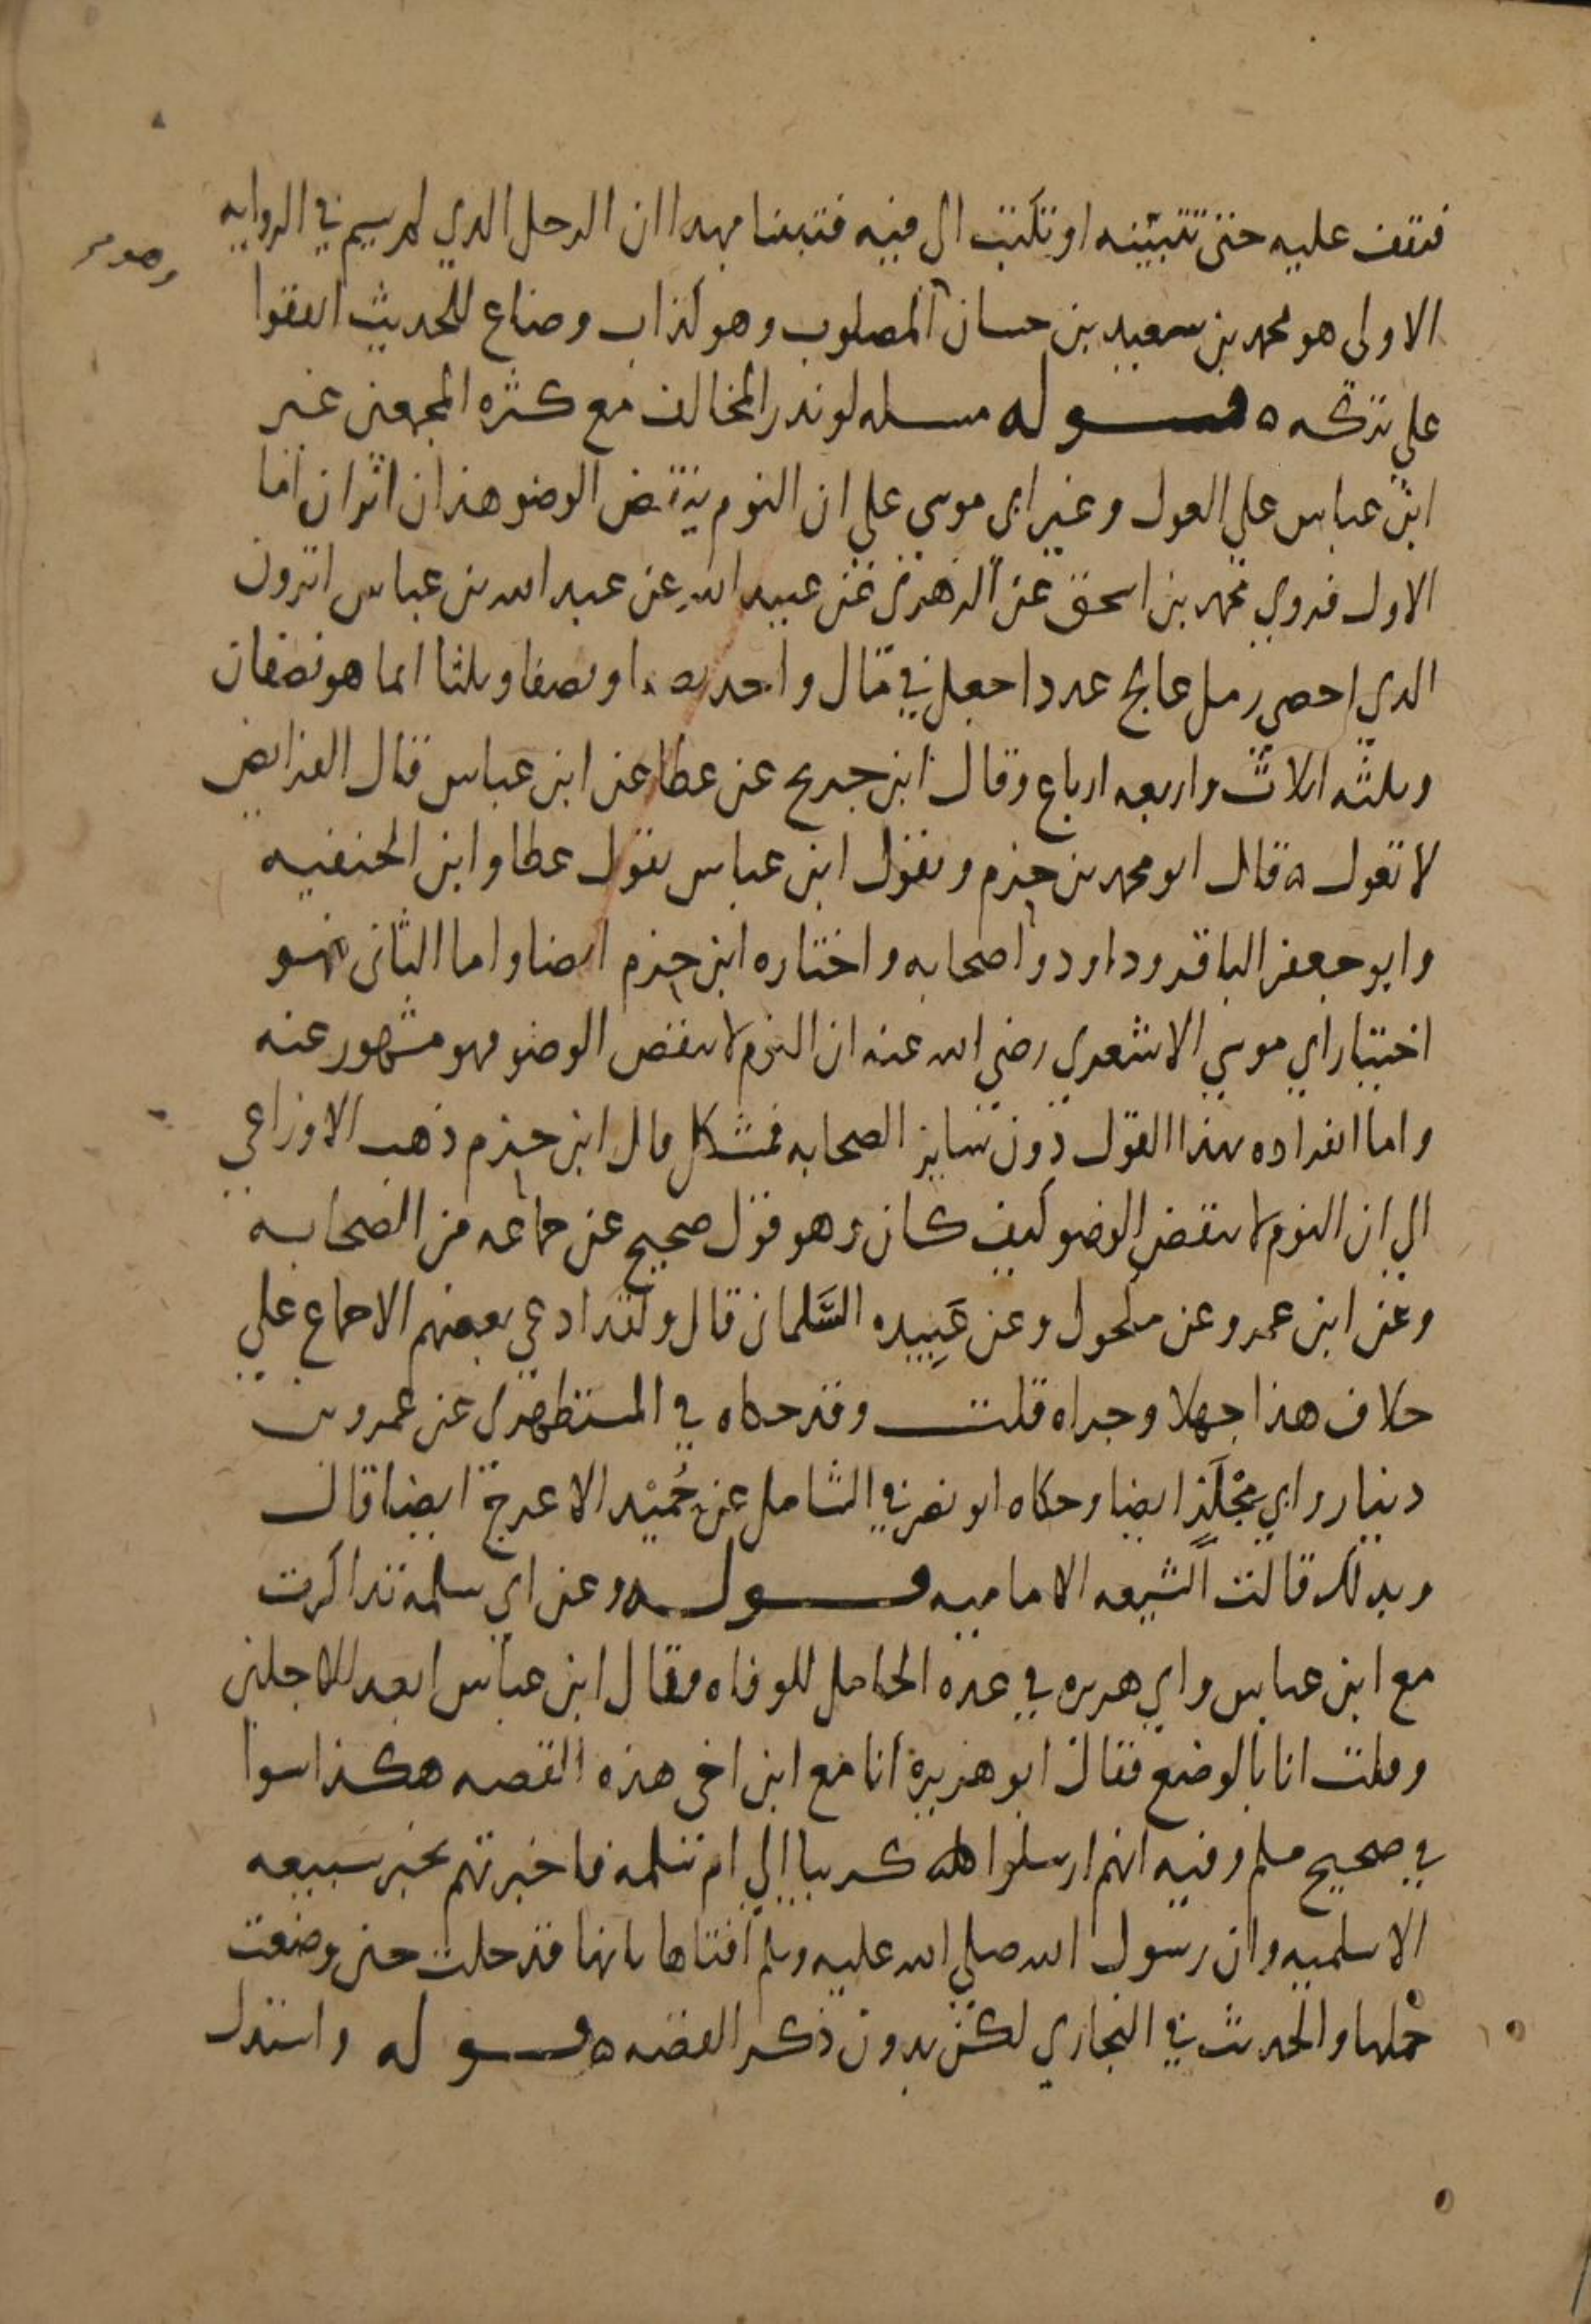 فتقف عليه حتى تتبينه او تكتب الى فيه فتبينا بهذا ان الرجل الذي لم يسم في الروايه
الاولى هو محمد بن سعيد بن حسان المصلوب وهو كذاب وضاع للحديث اتفقوا
على تركه ه قوله مسله لو ندر المخالف مع كثره المجمعين غير
ابن عباس على العول وغير ابي موسى على ان النوم ينقض الوضو هذان اثران اما
الاول فروي محمد بن اسحق عن الزهري عن عبيد الله عن عبد الله بن عباس اترون
الذي احصى رمل عالج عددا جعل في مال واحد نصفا ونصفا وثلثا انما هو نصفان
وثلثه اثلاث واربعه ارباع وقال ابن جريج عن عطا عن ابن عباس قال الفرايض
لا تعول ه قال ابو محمد بن حزم وبقول ابن عباس يقول عطا وابن الحنفيه
وابو جعفر الباقر وداود واصحابه واختاره ابن حزم ايضا واما الثاني فهو
اختيار ابي موسى الاشعري رضي الله عنه ان النوم لا ينقض الوضو فهو مشهور عنه
واما انفراده بهذا القول دون ساير الصحابه فمشكل قال ابن حزم ذهب الاوزاعي
الى ان النوم لا ينقض الوضو كيف كان وهو قول صحيح عن جماعه من الصحابه
وعن ابن عمر وعن مكحول وعن عَبِيده السَّلماني قال ولقد ادعى بعضهم الاجماع على
خلاف هذا جهلا وجراه قلت وقد حكاه في المستظهري عن عمرو بن
دينار وابي مِجْلَز ايضا وحكاه ابو نصر في الشامل عن حُمَيْد الاعرج ايضا قال
وبذلك قالت الشيعه الاماميه قوله وعن ابي سلمه تذاكرت
مع ابن عباس وابي هريره في عده الحامل للوفاه فقال ابن عباس ابعد الاجلين
وقلت انا بالوضع فقال ابو هريرة انا مع ابن اخي هذه القصه هكذا سوا
في صحيح مسلم وفيه انهم ارسلوا كريبا الى ام سلمه فاخبرتهم بخبر سبيعه
الاسلميه وان رسول الله صلى الله عليه وسلم افتاها بانها قد حلت حين وضعت
حملها والحديث في البخاري لكن بدون ذكر القصه ه قوله واستدل